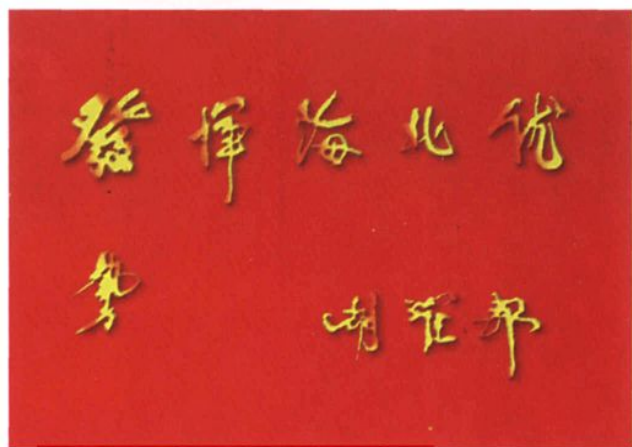 發揮海北优
勢
胡耀邦